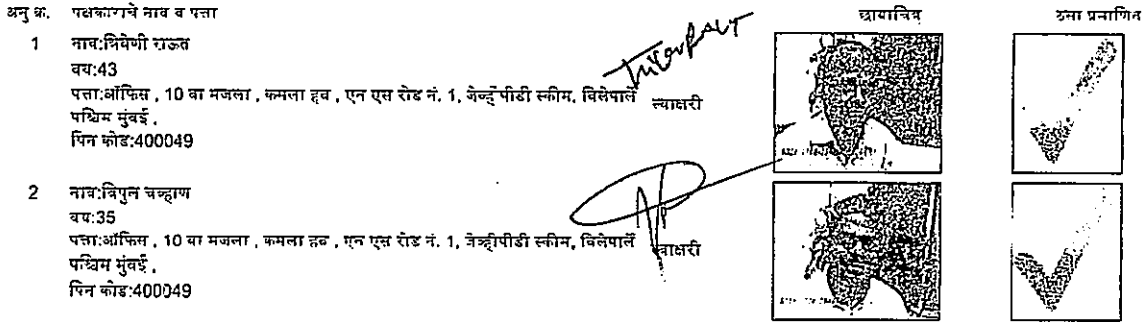 अनु क्र. पक्षकाराचे नाव व पत्ता छायाचित्र ठसा प्रमाणित
1 नाव:त्रिवेणी राऊत
वय:43
पत्ता:ऑफिस , 10 वा मजला , कमला हब , एन एस रोड नं. 1, जेव्हीपीडी स्कीम, विलेपार्ले
स्वाक्षरी
पश्चिम मुंबई ,
पिन कोड:400049
2 नाव:विपुल चव्हाण
वय:35
पत्ता:ऑफिस , 10 वा मजला , कमला हब , एन एस रोड नं. 1, जेव्हीपीडी स्कीम, विलेपार्ले
स्वाक्षरी
पश्चिम मुंबई ,
पिन कोड:400049